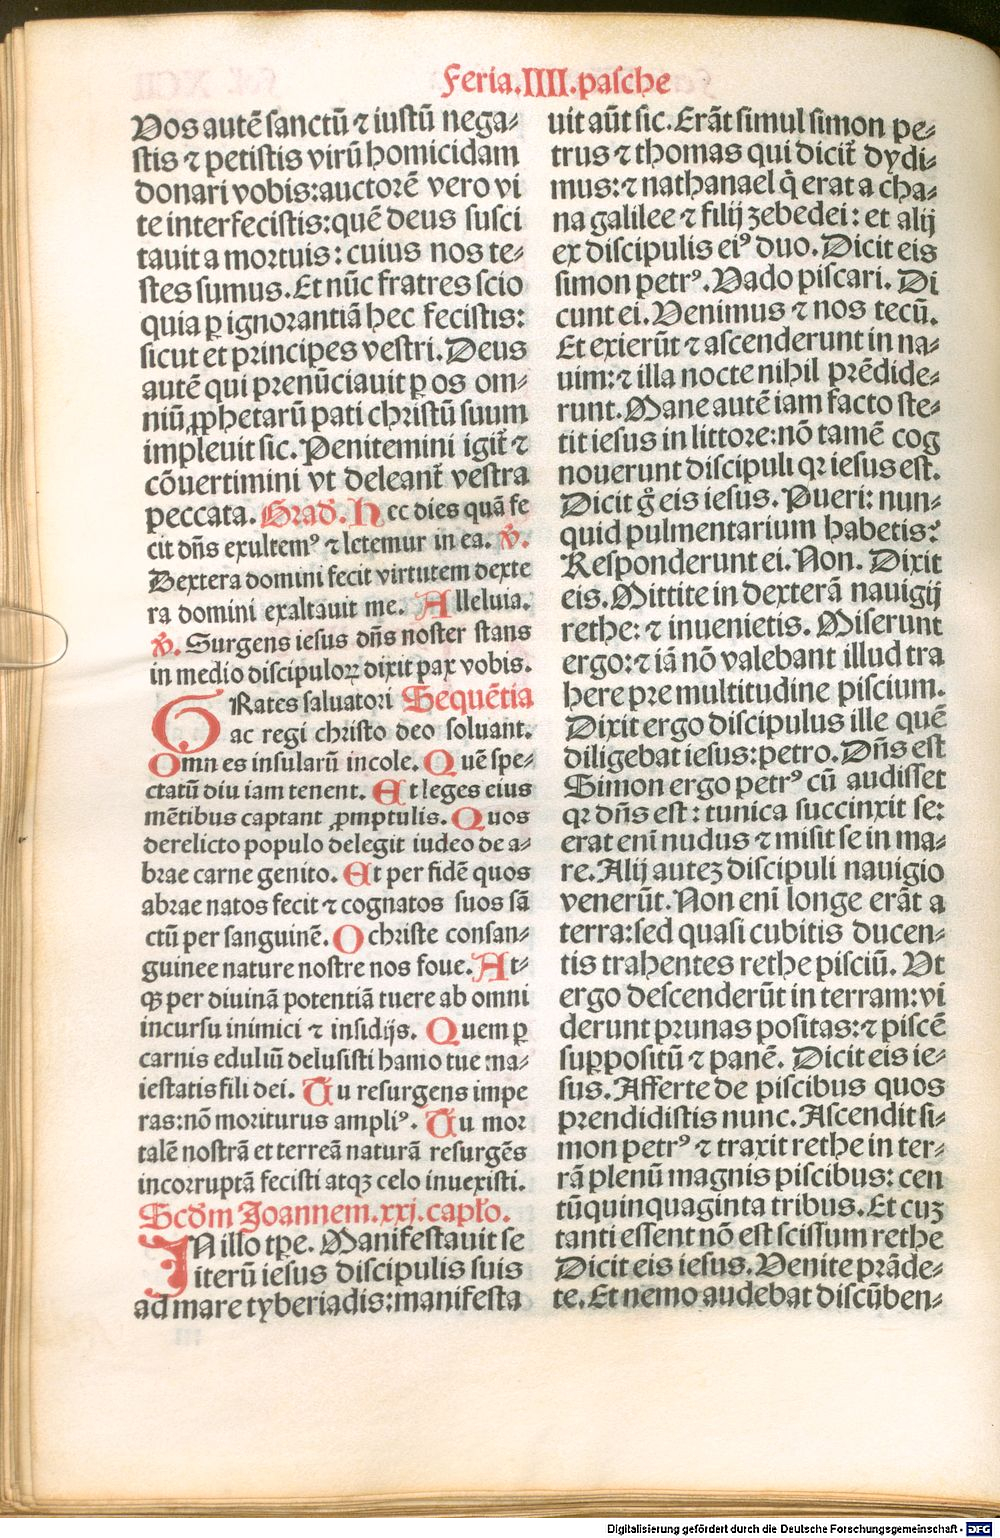 Feria.IIII.pasche
Vos autē sanctū ⁊ iustū nega⸗
stis ⁊ petistis virū homicidam
donari vobis:auctorē vero vi
te interfecistis:quē deus susci
tauit a mortuis: cuius nos te⸗
stes sumus. Et nūc fratres scio
quia ꝑ ignorantiā hec fecistis:
sicut et principes vestri. Deus
autē qui prenūciauit ꝑ os om⸗
niū ꝓphetarū pati christū suum
impleuit sic. Penitemini igit̃ ⁊
cōuertimini vt deleant̃ vestra
peccata. Grad̃. Hec dies quā fe
cit dñs exultemꝰ ⁊ letemur in ea. ℣.
Dextera domini fecit virtutem dexte
ra domini exaltauit me. Alleluia.
℣. Surgens iesus dñs noster stans
in medio discipuloꝝ dixit pax vobis.
GRates saluatori Sequētia
ac regi christo deo soluant.
Omnes insularū incole. Quē spe⸗
ctatū diu iam tenent. Et leges eius
mētibus captant ꝓmptulis. Quos
derelicto populo delegit iudeo de a⸗
brae carne genito. Et per fidē quos
abrae natos fecit ⁊ cognatos suos sā
ctū per sanguinē. O christe consan⸗
guinee nature nostre nos foue. At⸗
qꝫ per diuinā potentiā tuere ab omni
incursu inimici ⁊ insidijs. Quem ꝑ
carnis eduliū delusisti hamo tue ma⸗
iestatis fili dei. Tu resurgens impe
ras:nō moriturus ampliꝰ. Tu mor
talē nostrā et terreā naturā resurgēs
incorruptā fecisti atqꝫ celo inuexisti.
Scd̃m Joannem.xxj.capl̃o.
IN illo tp̄e. Manifestauit se
iterū iesus discipulis suis
ad mare tyberiadis:manifesta
uit aūt sic. Erāt simul simon pe⸗
trus ⁊ thomas qui dicit̃ dydi⸗
mus:⁊ nathanael q̇ erat a cha⸗
na galilee ⁊ filij zebedei: et alij
ex discipulis eiꝰ duo. Dicit eis
simon petrꝰ. Vado piscari. Di
cunt ei. Venimus ⁊ nos tecū.
Et exierūt ⁊ ascenderunt in na⸗
uim:⁊ illa nocte nihil prēdide⸗
runt. Mane autē iam facto ste⸗
tit iesus in littore:nō tamē cog
nouerunt discipuli qꝛ iesus est.
Dicit g̊ eis iesus. Pueri: nun⸗
quid pulmentarium habetis?
Responderunt ei. Non. Dixit
eis. Mittite in dexterā nauigij
rethe: ⁊ inuenietis. Miserunt
ergo:⁊ iā nō valebant illud tra
here pre multitudine piscium.
Dixit ergo discipulus ille quē
diligebat iesus:petro. Dñs est
Simon ergo petrꝰ cū audisset
qꝛ dñs est: tunica succinxit se:
erat enī nudus ⁊ misit se in ma⸗
re. Alij autez discipuli nauigio
venerūt. Non enī longe erāt a
terra:sed quasi cubitis ducen⸗
tis trahentes rethe pisciū. Vt
ergo descenderūt in terram:vi
derunt prunas positas:⁊ piscē
suppositū ⁊ panē. Dicit eis ie⸗
sus. Afferte de piscibus quos
prendidistis nunc. Ascendit si⸗
mon petrꝰ ⁊ traxit rethe in ter⸗
rā plenū magnis piscibus: cen
tūquinquaginta tribus. Et cuz
tanti essent nō est scissum rethe
Dicit eis iesus. Venite prāde⸗
te. Et nemo audebat discūben⸗
Digitalisierung gefördert durch die Deutsche Forschungsgemeinschaft - DFG